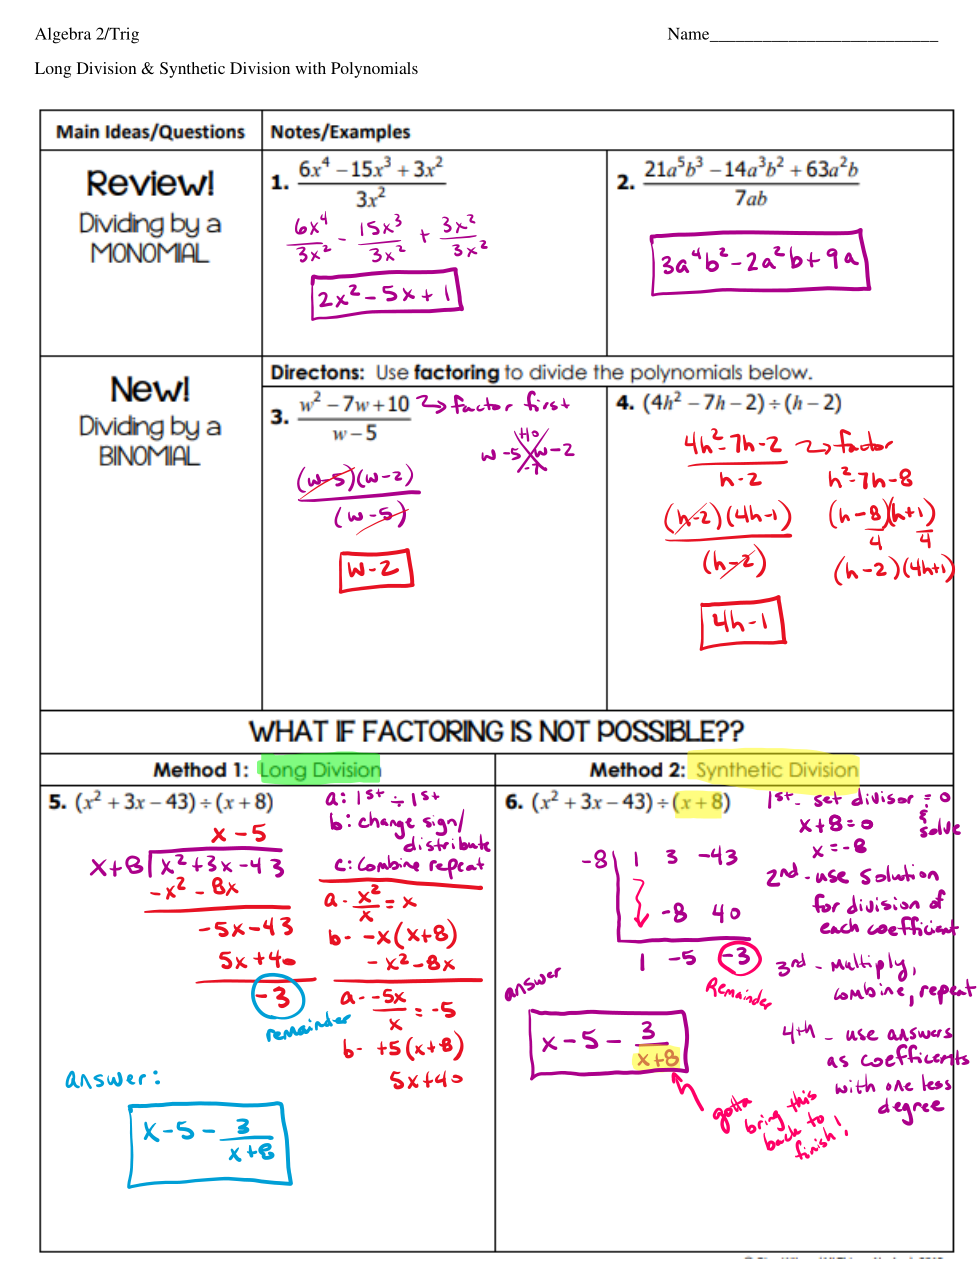 Algebra 2/Trig
Name__________________________
Long Division & Synthetic Division with Polynomials
Main Ideas/Questions
Notes/Examples
Review!
Dividing by a
MONOMIAL
1. (6x⁴ − 15x³ + 3x²)/(3x²)
6x⁴/3x² - 15x³/3x² + 3x²/3x²
2x² - 5x + 1
2. (21a⁵b³ − 14a³b² + 63a²b)/(7ab)
3a⁴b² - 2a²b + 9a
New!
Dividing by a
BINOMIAL
Directons: Use factoring to divide the polynomials below.
3. (w² − 7w + 10)/(w − 5)
→ factor first
w-5 w-2
-7
(w-5)(w-2)
(w-5)
w-2
4. (4h² − 7h − 2) ÷ (h − 2)
4h²-7h-2 → factor
h-2
h²-7h-8
(h-2)(4h-1)
(h-8)(h+1)
4 4
(h-2)
(h-2)(4h+1)
4h-1
WHAT IF FACTORING IS NOT POSSIBLE??
Method 1: Long Division
Method 2: Synthetic Division
5. (x² + 3x − 43) ÷ (x + 8)
a: 1st ÷ 1st
b: change sign/
distribute
c: combine repeat
x-5
x+8 x²+3x-43
-x²-8x
-5x-43
5x+40
-3
remainder
a- x²/x = x
b- -x(x+8)
-x²-8x
a- -5x/x = -5
b- +5(x+8)
5x+40
answer:
x-5- 3/(x+8)
6. (x² + 3x − 43) ÷ (x + 8)
1st- set divisor = 0
& solve
x+8=0
x=-8
-8 1 3 -43
-8 40
1 -5 -3
Remainder
2nd - use solution
for division of
each coefficient
3rd - Multiply,
combine, repeat
4th - use answers
as coefficents
with one less
degree
answer
x-5- 3/(x+8)
gotta
bring this
back to
finish!